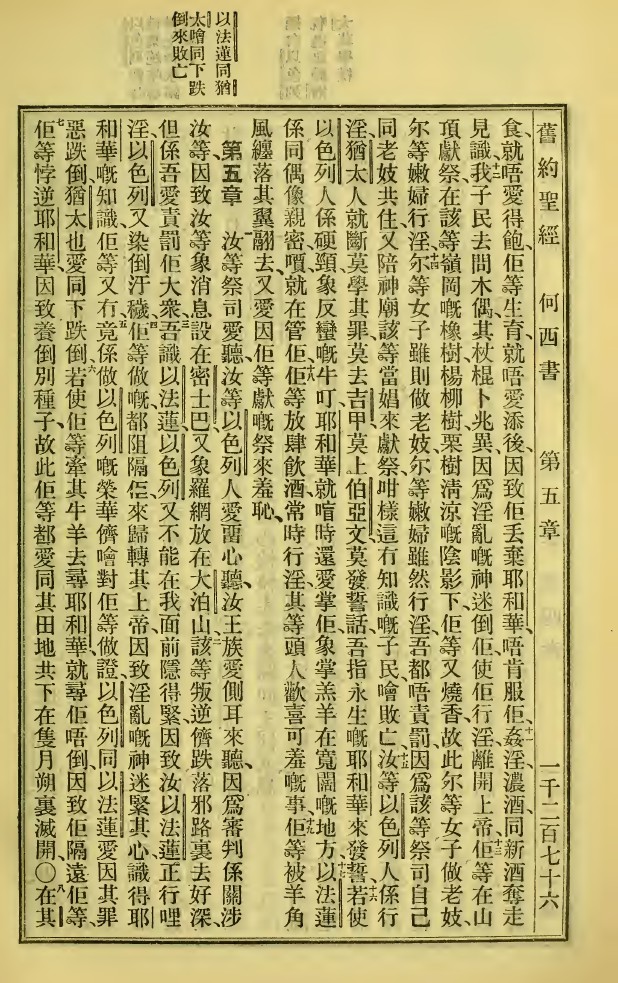 以法蓮同猶
太噲同下跌
倒來敗亡
舊約聖經 何西書 第五章 一千二百七十六
食就唔愛得飽佢等生育就唔愛添後因致佢丟棄耶和華唔肯服佢十一姦淫濃酒同新酒奪走
見識十二我子民去問木偶其杖棍卜兆異因爲淫亂嘅神迷倒佢使佢行淫離開上帝十三佢等在山
頂獻祭在該等嶺岡嘅橡樹楊栁樹栗樹淸涼嘅陰影下佢等又燒香故此尔等女子做老妓
尔等嫩婦行淫十四尔等女子雖則做老妓尔等嫩婦雖然行淫吾都唔責罰因爲該等祭司自己
同老妓共住又陪神廟該等當娼來獻祭咁樣這冇知識嘅子民噲敗亡十五汝等以色列人係行
淫猶太人就斷莫學其罪莫去吉甲莫上伯亞文莫發誓話吾指永生嘅耶和華來發誓十六若使
以色列人係硬頸象反蠻嘅牛叮耶和華就㫾時還愛掌佢象掌羔羊在寬闊嘅地方十七以法蓮
係同偶像親密嘪就在管佢十八佢等放肆飲酒常時行淫其等頭人歡喜可羞嘅事十九佢等被羊角
風纏落其翼翮去又愛因佢等獻嘅祭來羞恥
第五章 一汝等祭司愛聽汝等以色列人愛畱心聽汝王族愛側耳來聽因爲審判係關涉
汝等因致汝等象消息設在密士巴又象羅網放在大泊山二該等叛逆儕跌落邪路裏去好深
但係吾愛責罰佢大衆三吾識以法蓮以色列又不能在我面前隱得緊因致汝以法蓮正行哩
淫以色列又染倒汙穢四佢等做嘅都阻隔佢來歸轉其上帝因致淫亂嘅神迷緊其心識得耶
和華嘅知識佢等又冇五竟係做以色列嘅榮華儕噲對佢等做證以色列同以法蓮愛因其罪
惡跌倒猶太也愛同下跌倒六若使佢等牽其牛羊去尋耶和華就尋佢唔倒因致佢隔遠佢等
七佢等悖逆耶和華因致養倒別種子故此佢等都愛同其田地共下在隻月朔裏滅開〇八在其